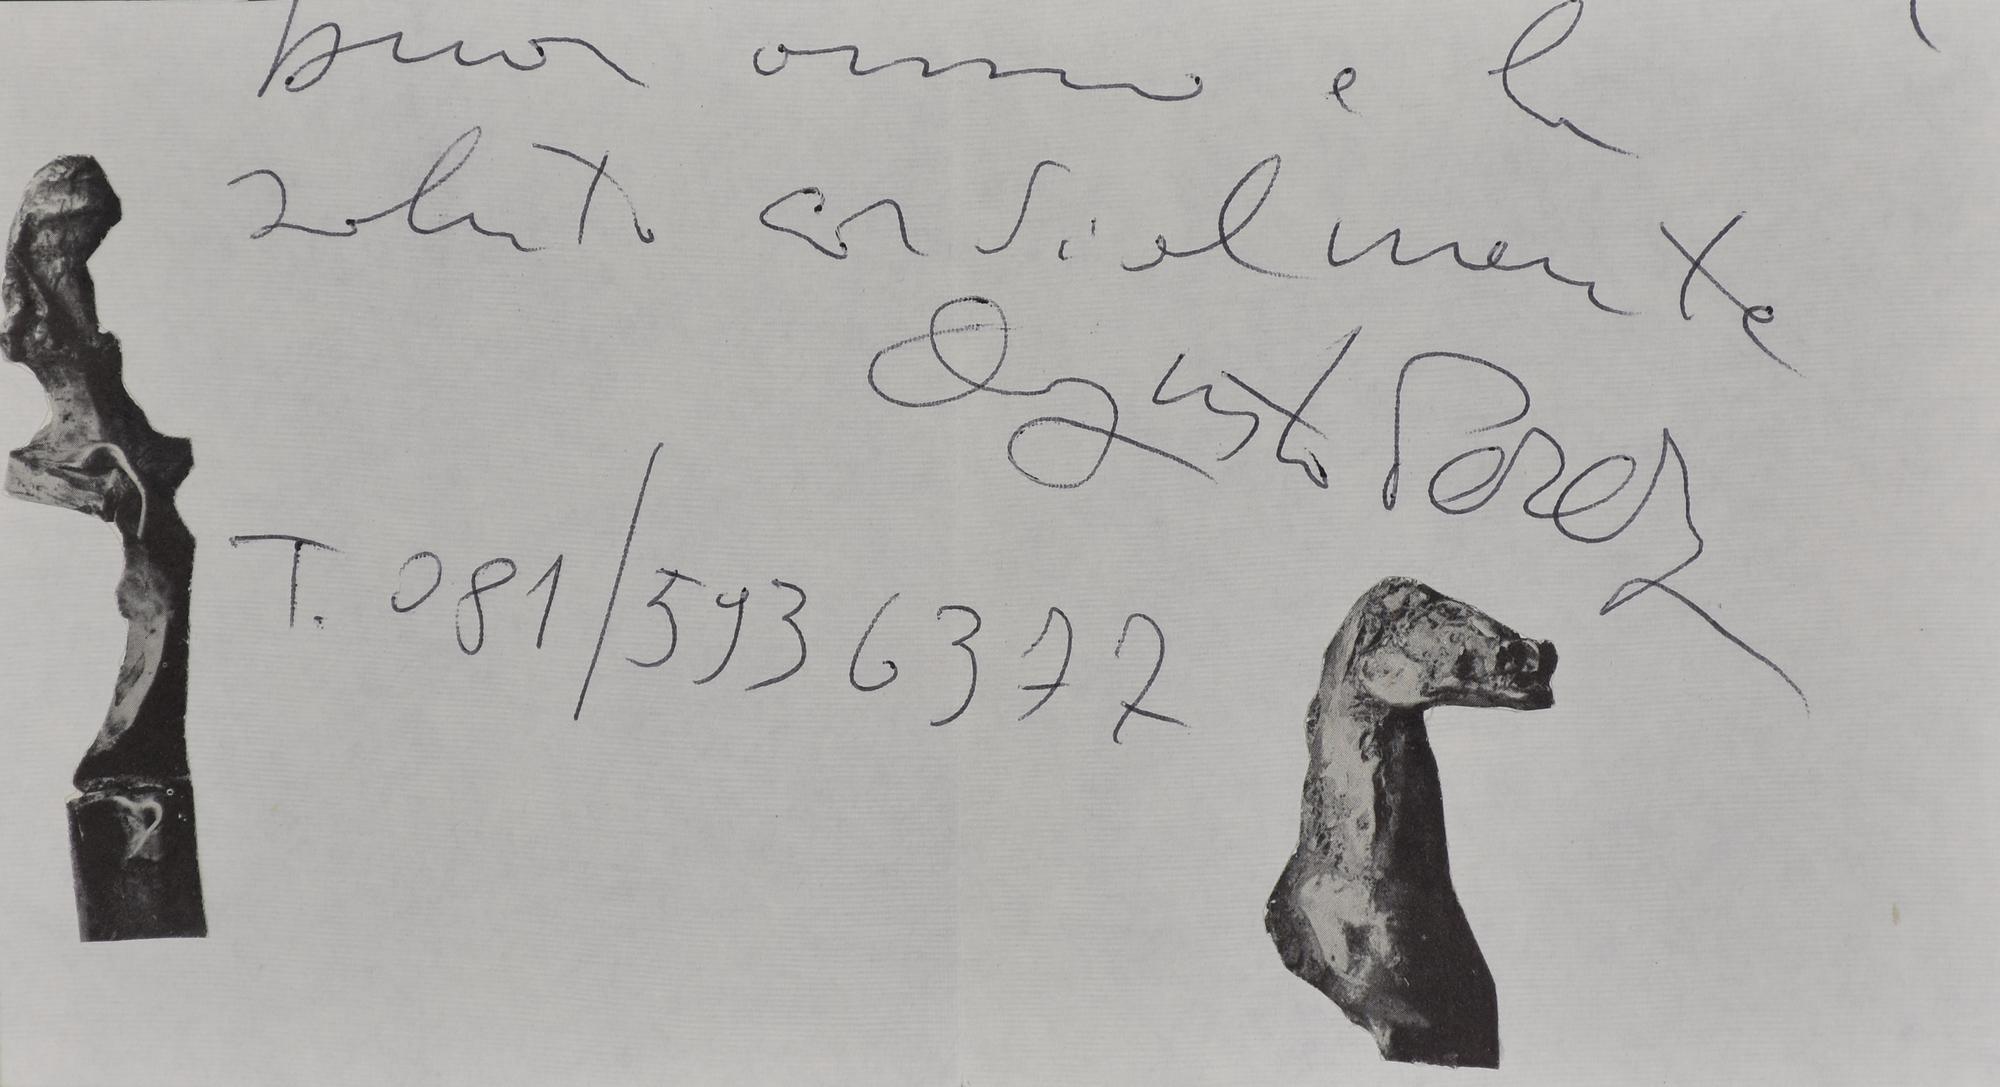 buon anno e la
saluto cordialmente
Augusto Perez
T. 081/5936377